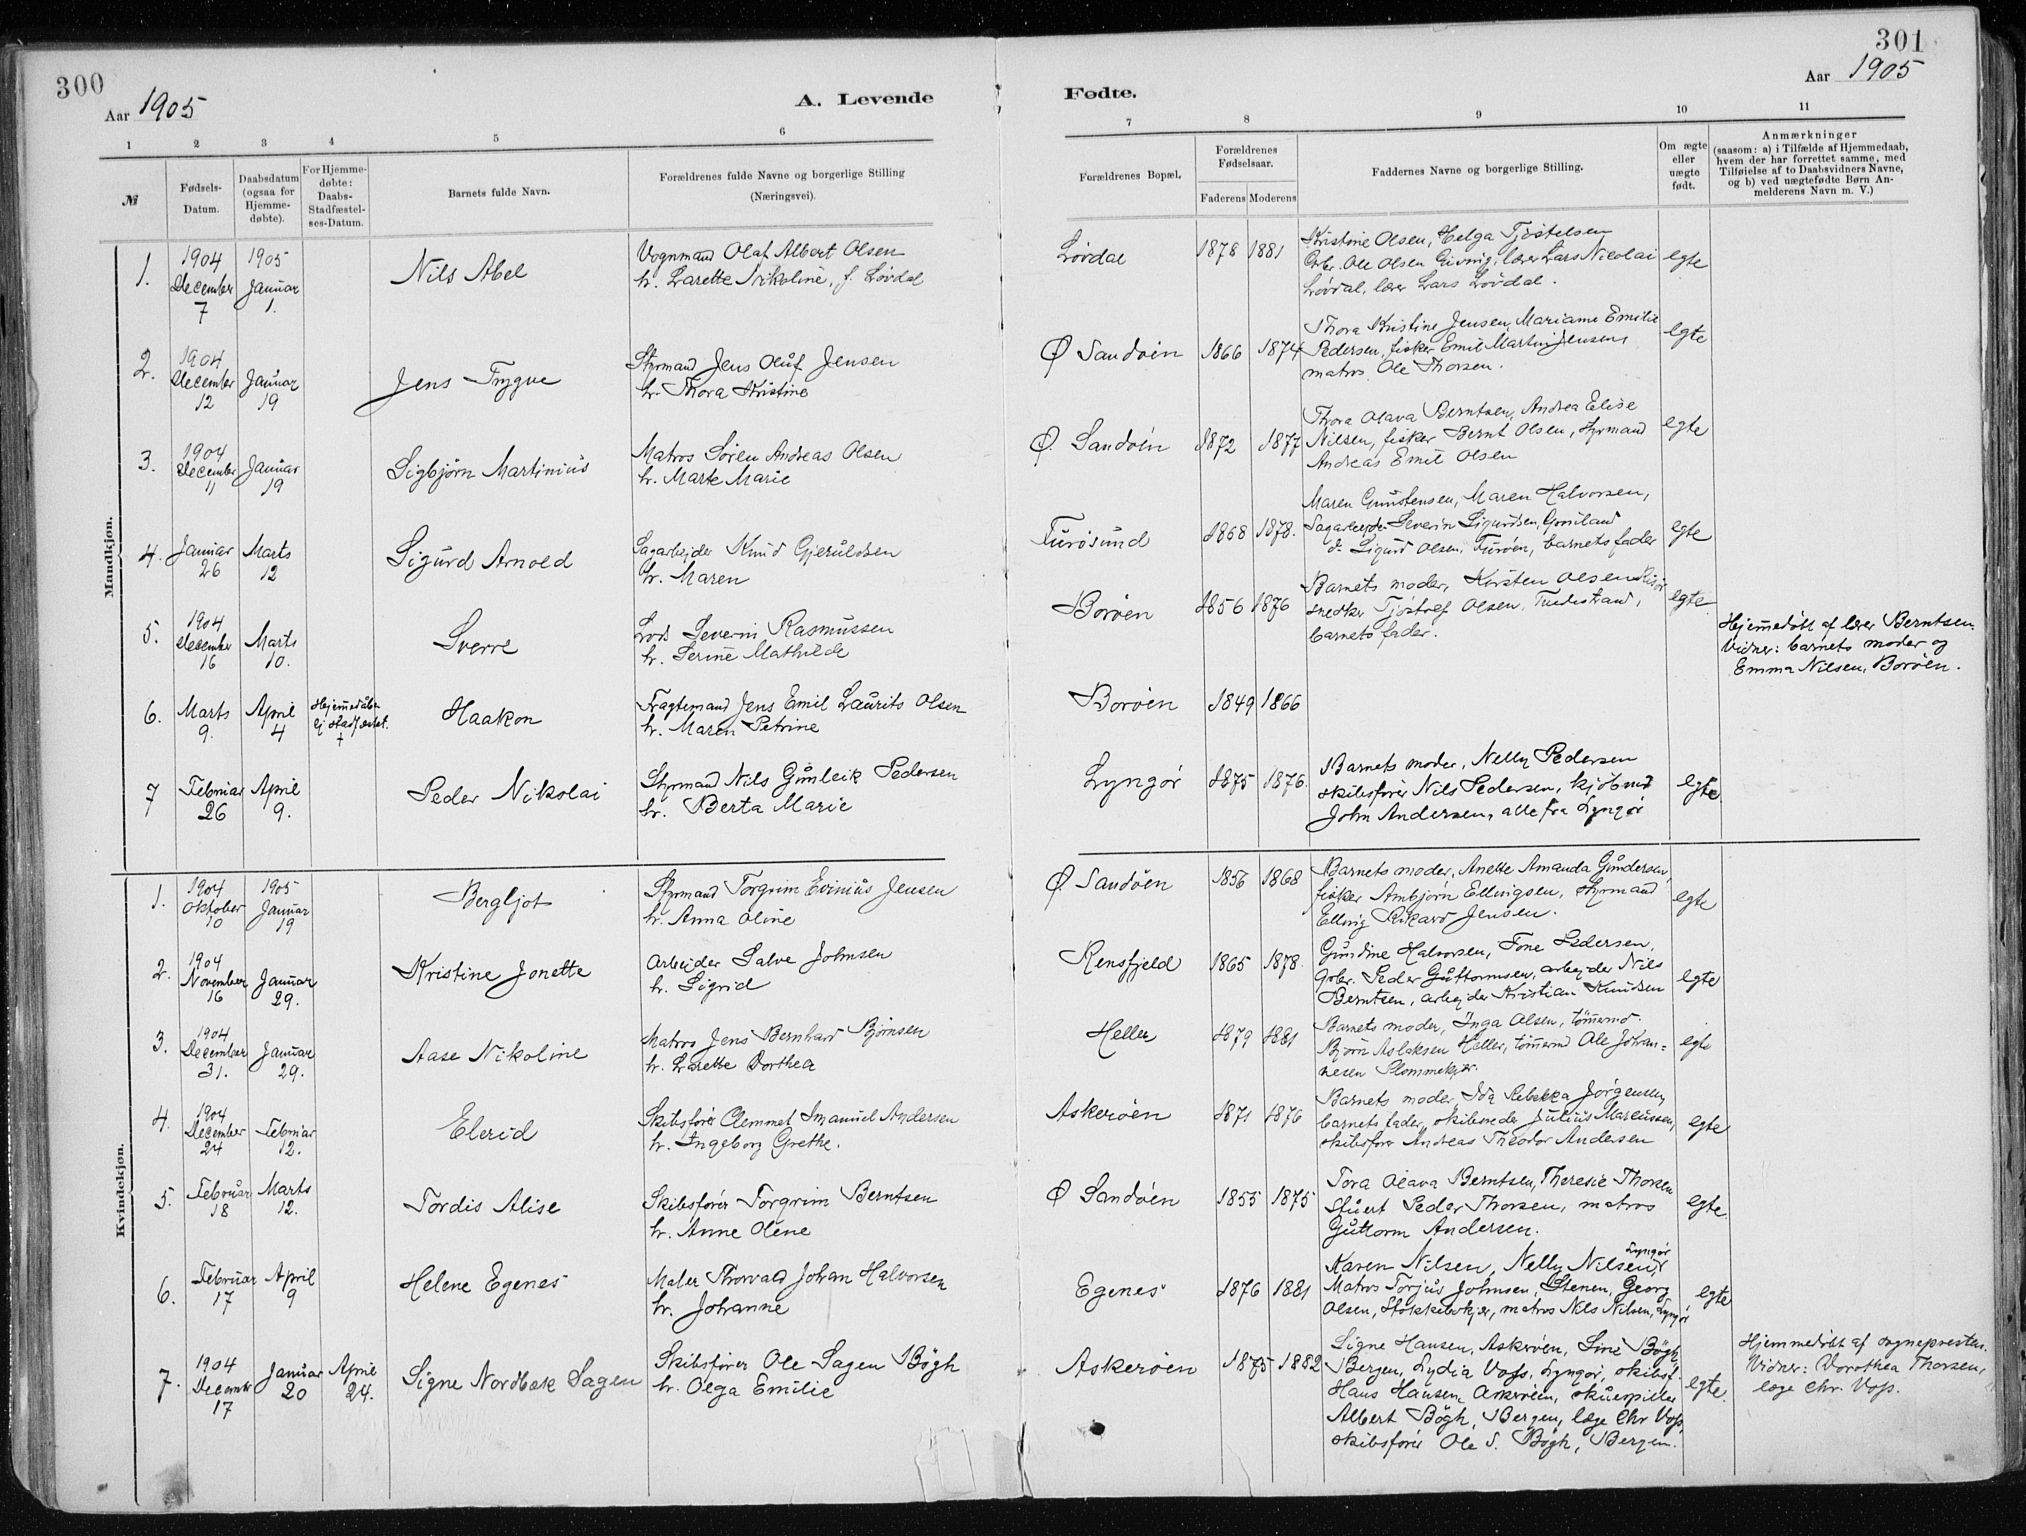 300
Aar 1905
A. Levende
1 2 3 4 5 6
№
Fødsels-
Datum.
Daabsdatum
(ogsaa for
Hjemme-
døbte).
For Hjemme-
døbte:
Daabs-
Stadfæstel-
ses-Datum.
Barnets fulde Navn.
Forældrenes fulde Navne og borgerlige Stilling
(Næringsvei).
Mandkjøn.
1. 1904 December 7 1905 Januar 1. Nils Abel
Vognmand Olaf Albert Olsen
h. Larette Nikoline, f. Løvdal
2. 1904 December 12 Januar 19 Jens Trygve
Styrmand Jens Oluf Jensen
h. Thora Kristine
3. 1904 December 11 Januar 19 Sigbjörn Martinius
Matros Sören Andreas Olsen
h. Marte Marie
4. Januar 26 Marts 12 Sigurd Arnold
Sagarbejder Knud Gjeruldsen
h. Maren
5. 1904 December 16 Marts 10. Sverre
Lods Severin Rasmussen
h. Serine Mathilde
6. Marts 9. April 4 Hjemmedöbt ej stadfæstet. † Haakon
Fragtemand Jens Emil Laurits Olsen
h. Maren Petrine
7 Februar 26 April 9. Peder Nikolai
Styrmand Nils Gunleik Pedersen
h. Berta Marie
Kvindekjøn.
1. 1904 Oktober 10 1905 Januar 19 Bergljot
Styrmand Torgrim Evinius Jensen
h. Anna Oline
2. 1904 November 16 Januar 29. Kristine Jonette
Arbejder Salve Johnsen
h. Sigrid
3. 1904 December 31. Januar 29. Aase Nikoline
Matros Jens Bernhard Björnsen
h. Larette Dorthea
4. 1904 December 24 Februar 12. Elerid
Skibsförer Clemmet Imanuel Andersen
h. Ingeborg Grethe.
5. Februar 18 Marts 12. Tordis Alise
Skibsförer Torgrim Berntsen
h. Anne Olene
6. Februar 17 April 9 Helene Egenes
Maler Thorvald Johan Halvorsen
h. Johanne
7. 1904 December 17 Januar 20 April 24. Signe Nordbæk Sagen
Skibsförer Ole Sagen Bögh
h. Olga Emilie
301
Aar 1905
Fødte.
7 8 9 10 11
Forældrenes Bopæl.
Forældrenes
Fødselsaar.
Faderens Moderens
Faddernes Navne og borgerlige Stilling.
Om ægte
eller
uægte
født.
Anmærkninger
(saasom: a) i Tilfælde af Hjemmedaab,
hvem der har forrettet samme, med
Tilføielse af to Daabsvidners Navne,
og b) ved uægtefødte Børn An-
melderens Navn m. V.)
Løvdal 1878 1881
Kristine Olsen, Helga Tjöstelsen
Gbr. Ole Olsen, lærer Lars Nicolai
Lövdal, lærer Lars Lövdal.
egte
Ø Sandöen 1866 1874
Thora Kristine Jensen, Mariame Emilie
Pedersen, fisker Emil Martin Jensen,
matros Ole Thorsen.
egte
Ø. Sandöen 1872 1877
Thora Olava Berntsen, Andrea Elise
Nilsen, fisker Bernt Olsen, Styrmand
Andreas Emil Olsen
egte
Furösund 1868 1878.
Maren Gunstensen, Maren Halvorsen,
Sagarbejder Severin Sigurdsen,
do Sigurd Olsen, Furöen, barnets fader
egte
Boröen 1856 1876
Barnets moder, Kirsten Olsen Risör
snedker Tjöstolf Olsen, Tvedestrand,
barnets fader.
egte
Hjemmedöbt af lærer Berntsen.
Vidner: barnets moder og
Emma Nilsen, Boröen.
Boröen 1849 1866
Lyngör 1875 1876.
Barnets moder, Nelly Pedersen
skibsförer Nils Pedersen, kjöbmd
John Andersen, alle fra Lyngör
egte
Ø Sandöen 1856 1868
Barnets moder, Anette Amanda Gundersen,
fisker Arnbjörn Ellingsen, Styrmand
Elling Rikard Jensen.
egte
Rensfjeld 1865 1878.
Gundine Halvorsen, Tone Pedersen,
Gbr. Peder Guttormsen, arbejder Nils
Berntsen, arbejder Kristian Knudsen
egte
Heller 1879 1881
Barnets moder, Inga Olsen, tömmermd
Björn Aslaksen Heller, tömmermd Ole Johan=
nesen Blommekjær.
egte
Askeröen 1871 1876
Barnets moder, Ida Rebekka Jörgensen,
barnets fader, skibsreder Julius Marcussen,
skibsförer Andreas Theodor Andersen
egte
Ø Sandöen 1855 1875
Tora Olava Berntsen, Theresie Thorsen
Stuert Peder Thorsen, matros
Guttorm Andersen.
egte
Egenes 1876 1881
Karen Nilsen, Nelly Nilsen, Lyngör
Matros Torjus Johnsen, Stenen, Georg
Olsen, Stokkebokjer, matros Nils Nilsen, Lyngör
egte
Askeröen 1875 1882
Signe Hansen, Askeröen, Sine Bögh,
Bergen, Lydia Voss, Lyngör, skibsf.
Hans Hansen, Askeröen, skuespiller
Albert Bögh, Bergen, læge Chr Voss,
skibsförer Ole S. Bögh, Bergen.
egte.
Hjemmedöbt af sognepresten.
Vidner: Dorothea Thorsen,
læge Chr. Voss.